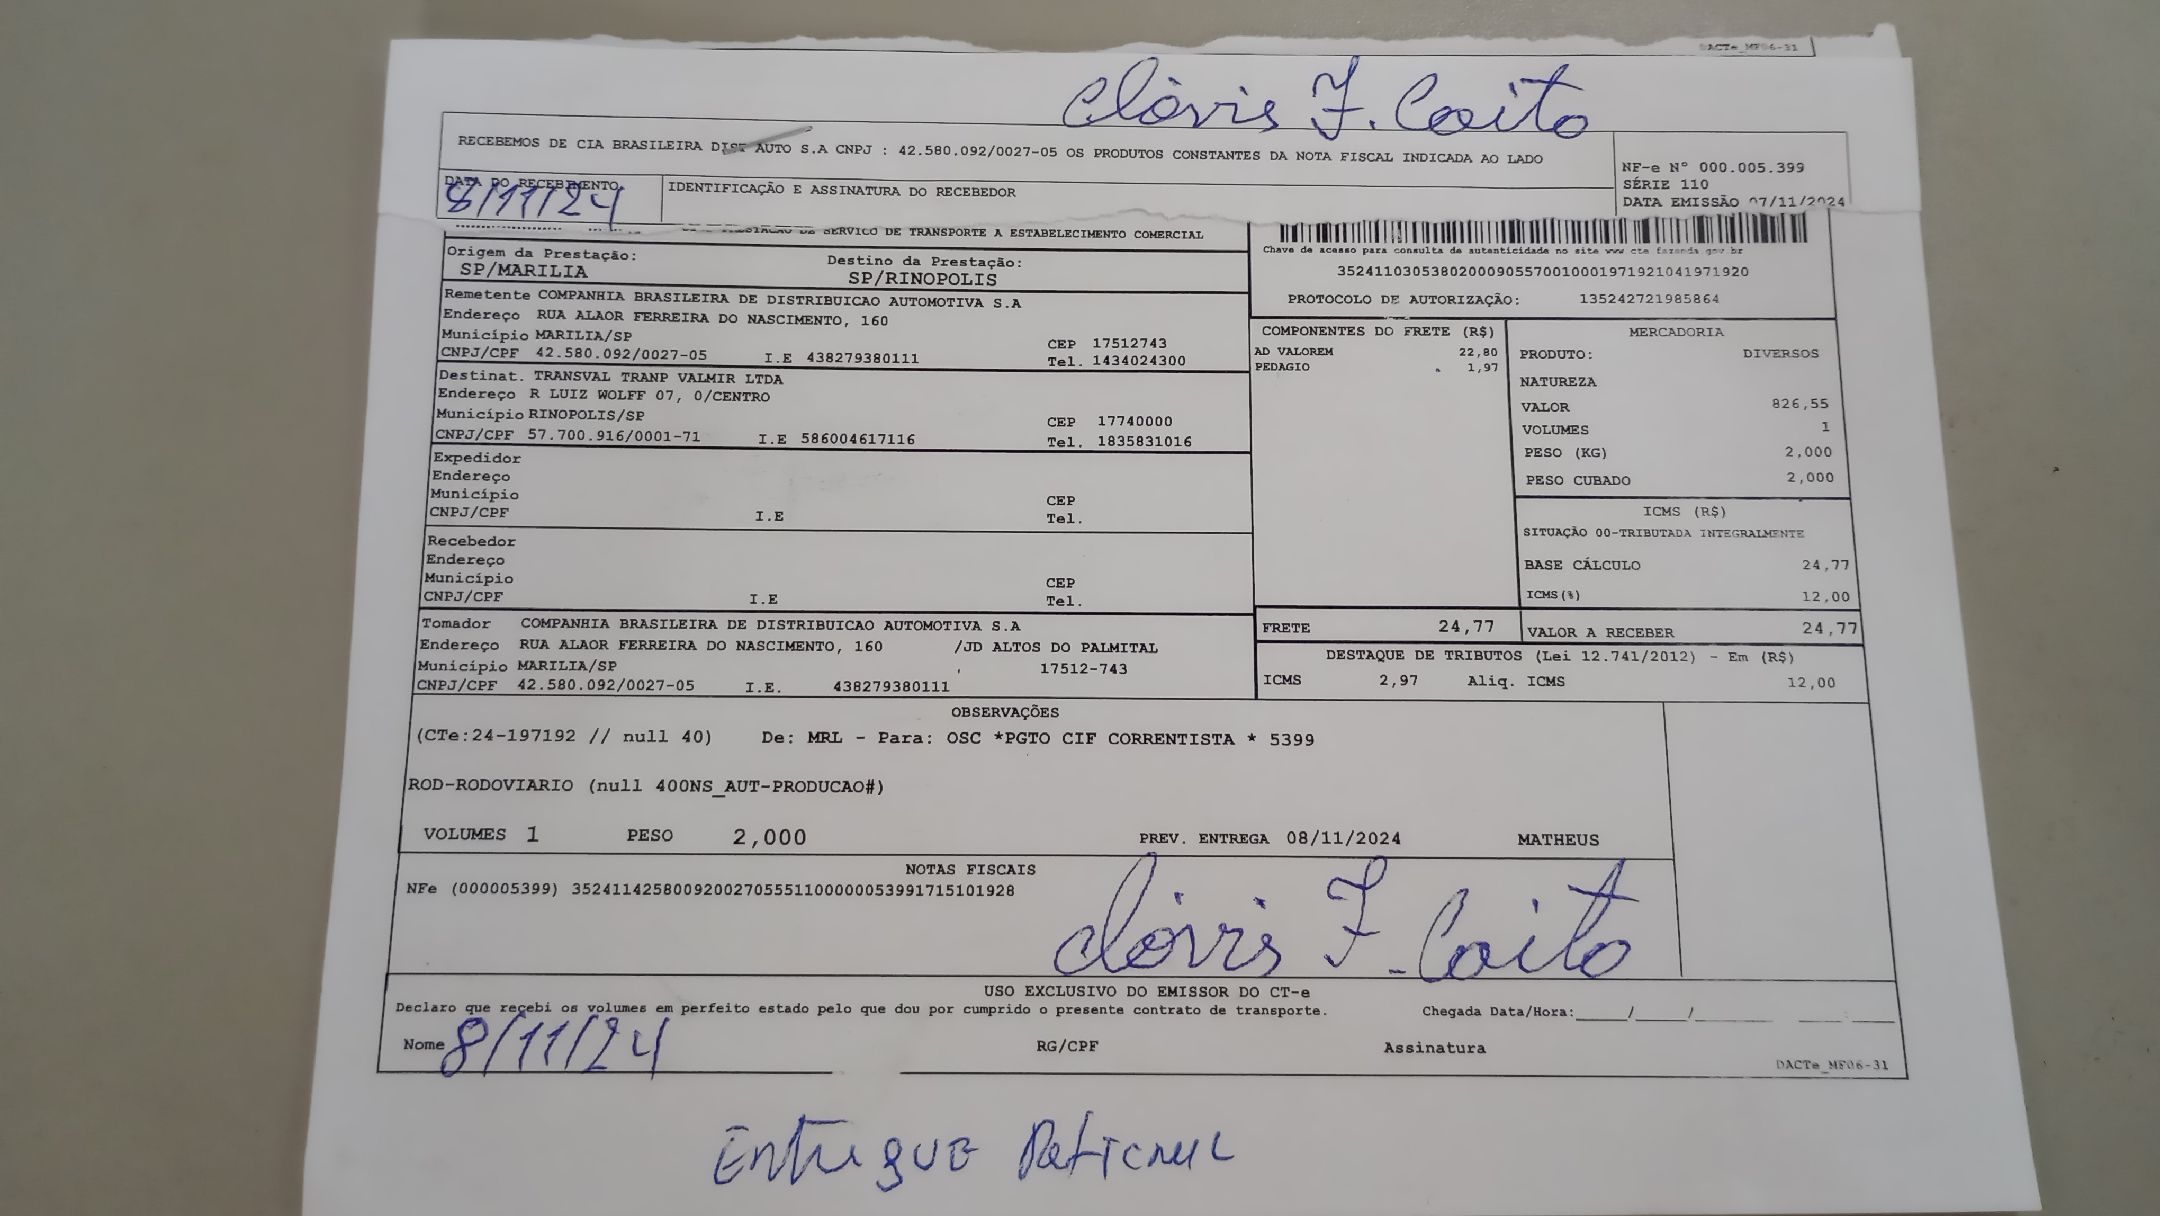 DACTe_MF06-31
Clóvis F. Coito
RECEBEMOS DE CIA BRASILEIRA DIST AUTO S.A CNPJ : 42.580.092/0027-05 OS PRODUTOS CONSTANTES DA NOTA FISCAL INDICADA AO LADO
NF-e N° 000.005.399
SÉRIE 110
DATA EMISSÃO 07/11/2024
DATA DO RECEBIMENTO
8/11/24
IDENTIFICAÇÃO E ASSINATURA DO RECEBEDOR
SERVICO DE TRANSPORTE A ESTABELECIMENTO COMERCIAL
Chave de acesso para consulta de autenticidade no site www cte fazenda gov br
35241103053802000905570010001971921041971920
PROTOCOLO DE AUTORIZAÇÃO: 135242721985864
Origem da Prestação:
SP/MARILIA
Destino da Prestação:
SP/RINOPOLIS
Remetente COMPANHIA BRASILEIRA DE DISTRIBUICAO AUTOMOTIVA S.A
Endereço RUA ALAOR FERREIRA DO NASCIMENTO, 160
Município MARILIA/SP CEP 17512743
CNPJ/CPF 42.580.092/0027-05 I.E 438279380111 Tel. 1434024300
Destinat. TRANSVAL TRANP VALMIR LTDA
Endereço R LUIZ WOLFF 07, 0/CENTRO
Município RINOPOLIS/SP CEP 17740000
CNPJ/CPF 57.700.916/0001-71 I.E 586004617116 Tel. 1835831016
Expedidor
Endereço
Município CEP
CNPJ/CPF I.E Tel.
Recebedor
Endereço
Município CEP
CNPJ/CPF I.E Tel.
Tomador COMPANHIA BRASILEIRA DE DISTRIBUICAO AUTOMOTIVA S.A
Endereço RUA ALAOR FERREIRA DO NASCIMENTO, 160 /JD ALTOS DO PALMITAL
Município MARILIA/SP 17512-743
CNPJ/CPF 42.580.092/0027-05 I.E. 438279380111
COMPONENTES DO FRETE (R$)
AD VALOREM 22,80
PEDAGIO 1,97
MERCADORIA
PRODUTO: DIVERSOS
NATUREZA
VALOR 826,55
VOLUMES 1
PESO (KG) 2,000
PESO CUBADO 2,000
ICMS (R$)
SITUAÇÃO 00-TRIBUTADA INTEGRALMENTE
BASE CÁLCULO 24,77
ICMS(%) 12,00
FRETE 24,77 VALOR A RECEBER 24,77
DESTAQUE DE TRIBUTOS (Lei 12.741/2012) - Em (R$)
ICMS 2,97 Aliq. ICMS 12,00
OBSERVAÇÕES
(CTe:24-197192 // null 40) De: MRL - Para: OSC *PGTO CIF CORRENTISTA * 5399
ROD-RODOVIARIO (null 400NS_AUT-PRODUCAO#)
VOLUMES 1 PESO 2,000 PREV. ENTREGA 08/11/2024 MATHEUS
NOTAS FISCAIS
NFe (000005399) 35241142580092002705551100000053991715101928
Clóvis F. Coito
USO EXCLUSIVO DO EMISSOR DO CT-e
Declaro que recebi os volumes em perfeito estado pelo que dou por cumprido o presente contrato de transporte. Chegada Data/Hora:_____/_____/_______ ____:____
Nome 8/11/24 RG/CPF Assinatura
DACTe_MF06-31
Entregue